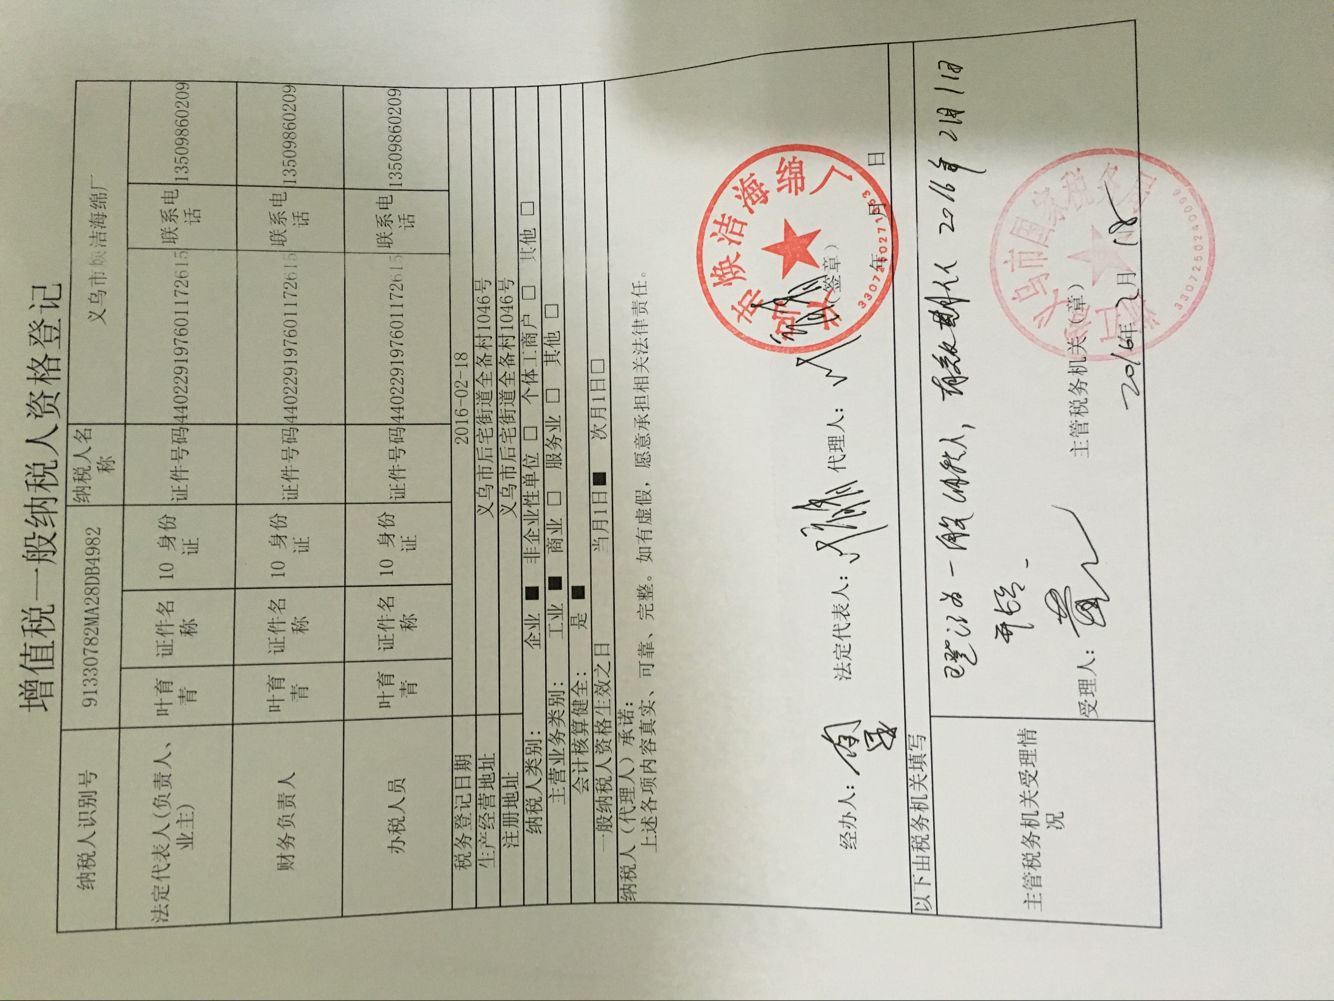 增值税一般纳税人资格登记
纳税人识别号 91330782MA28DB4982 纳税人名称 义乌市焕洁海绵厂
法定代表人(负责人、业主) 叶育青 证件名称 10 身份证 证件号码 440229197601172615 联系电话 13509860209
财务负责人 叶育青 证件名称 10 身份证 证件号码 440229197601172615 联系电话 13509860209
办税人员 叶育青 证件名称 10 身份证 证件号码 440229197601172615 联系电话 13509860209
税务登记日期 2016-02-18
生产经营地址 义乌市后宅街道全备村1046号
注册地址 义乌市后宅街道全备村1046号
纳税人类别: 企业 ■ 非企业性单位 □ 个体工商户 □ 其他 □
主营业务类别: 工业 ■ 商业 □ 服务业 □ 其他 □
会计核算健全: 是 ■
一般纳税人资格生效之日 当月1日■ 次月1日□
纳税人(代理人)承诺:
上述各项内容真实、可靠、完整。如有虚假,愿意承担相关法律责任。
义乌市焕洁海绵厂
经办人: 法定代表人: 代理人: (签章)
年 月 日
以下由税务机关填写
主管税务机关受理情况
登记为一般纳税人, 有效期从 2016年2月1日
开始
义乌市国家税务局
受理人: 主管税务机关(章)
2016年2月18